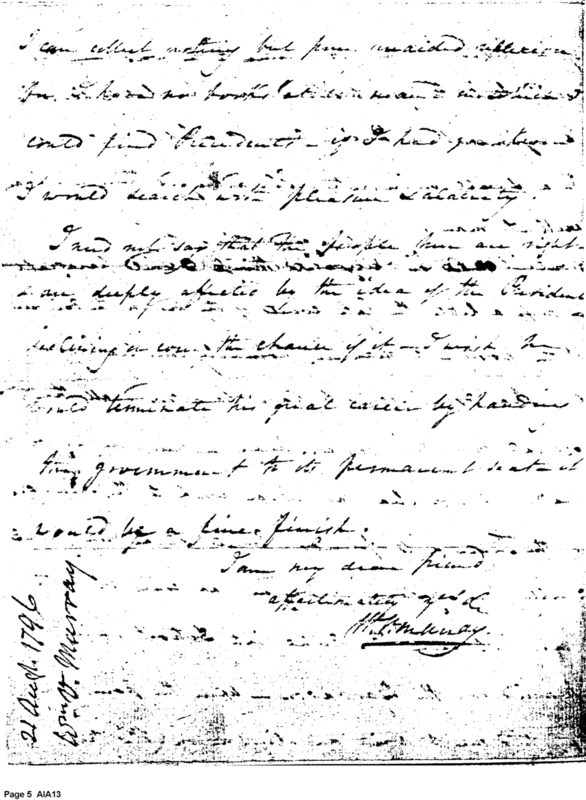 I can collect nothing but from unaided reflexion
for I have no books at
could find Precedents – if I had
I would search with pleasure & alacrity.
I need not say that the people here are right
& are deeply affected by the idea of the President
the chance of it – I wish he
could terminate his great career by handing
the government to its permanent seat it
would be a fine finish.
I am my dear friend
affectionately yrs &c
W. V. Murray
21 Augt. 1796
Wm V. Murray
Page 5 AIA13